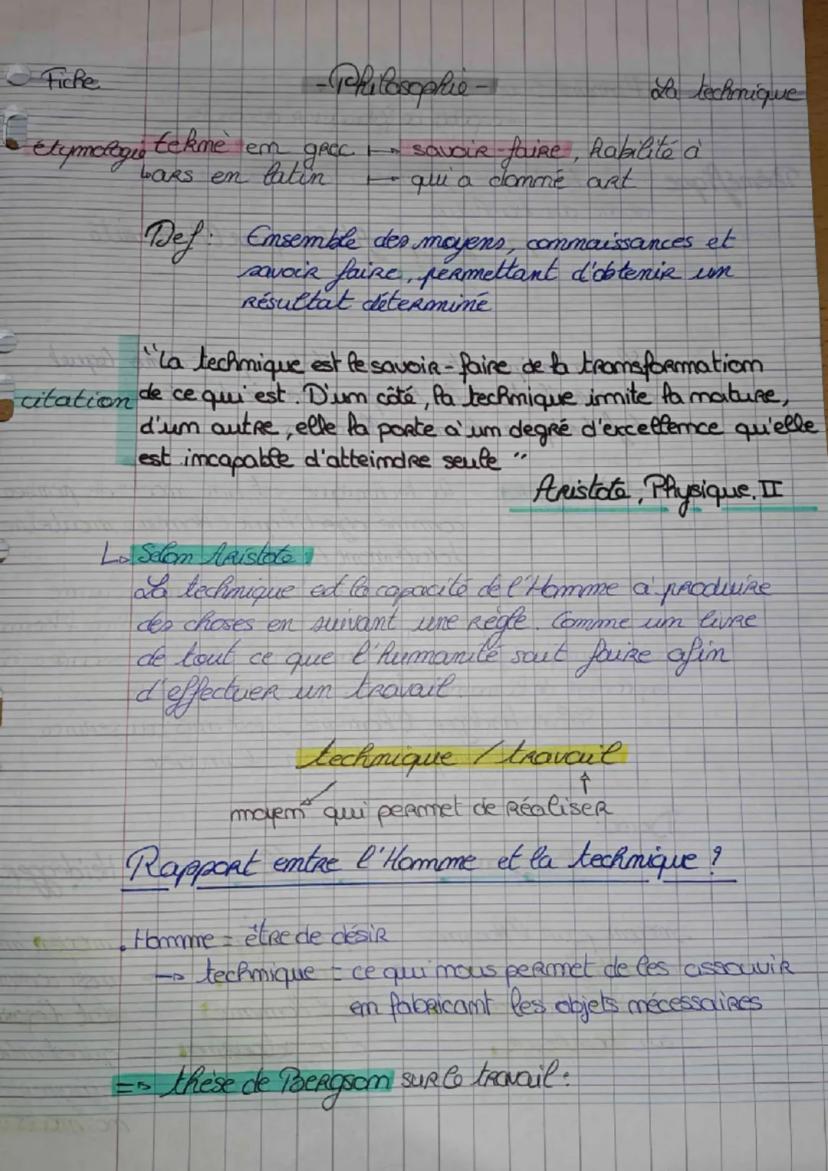 Fiche -Philosophie- La technique
étymologie teknè en grec → savoir-faire, habilité à
↳ ars en latin → qui a donné art
Def: Ensemble des moyens, connaissances et
savoir faire, permettant d'obtenir un
résultat déterminé
"La technique est le savoir-faire de la transformation
citation de ce qui est. D'un côté, la technique imite la nature,
d'un autre, elle la porte à un degré d'excellence qu'elle
est incapable d'atteindre seule"
Aristote, Physique, II
↳ Selon Aristote:
La technique est la capacité de l'Homme à produire
des choses en suivant une règle. Comme un livre
de tout ce que l'humanité sait faire afin
d'effectuer un travail.
technique / travail
moyen qui permet de réaliser
Rapport entre l'Homme et la technique ?
. Homme = être de désir
→ technique = ce qui nous permet de les assouvir
en fabricant les objets nécessaires
=> thèse de Bergson sur le travail: